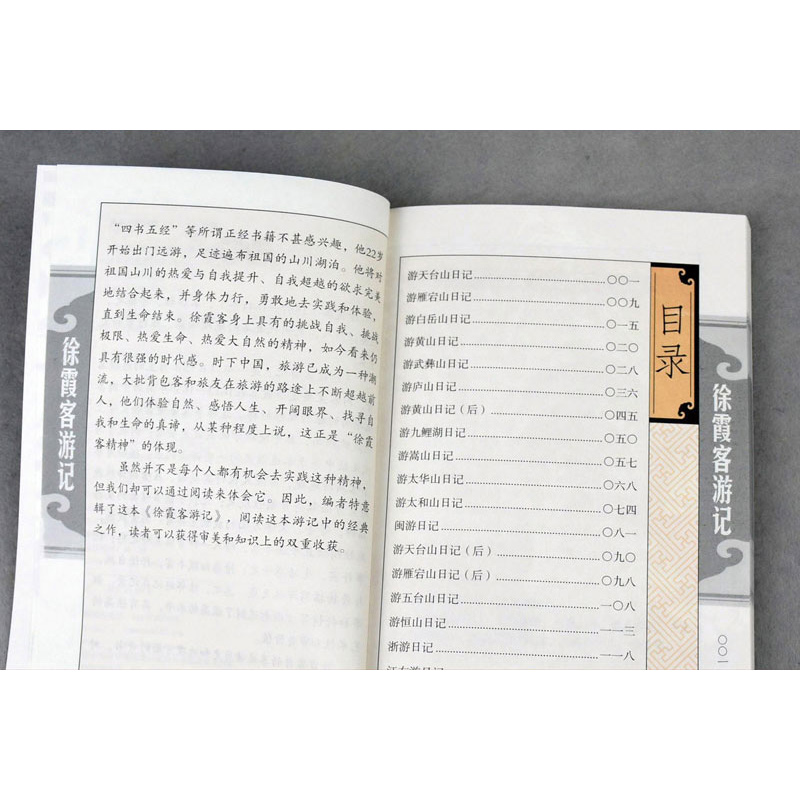 徐霞客游记
“四书五经”等所谓正经书籍不甚感兴趣，他22岁
开始出门远游，足迹遍布祖国的山川湖泊。他将对
祖国山川的热爱与自我提升、自我超越的欲求完美
地结合起来，并身体力行，勇敢地去实践和体验，
直到生命结束。徐霞客身上具有的挑战自我、挑战
极限、热爱生命、热爱大自然的精神，如今看来仍
具有很强的时代感。时下中国，旅游已成为一种潮
流，大批背包客和旅友在旅游的路途上不断超越前
人，他们体验自然、感悟人生、开阔眼界、找寻自
我和生命的真谛，从某种程度上说，这正是“徐霞
客精神”的体现。
虽然并不是每个人都有机会去实践这种精神，
但我们却可以通过阅读来体会它。因此，编者特意
辑了这本《徐霞客游记》，阅读这本游记中的经典
之作，读者可以获得审美和知识上的双重收获。
目录
游天台山日记……〇〇一
游雁宕山日记……〇〇九
游白岳山日记……〇一五
游黄山日记……〇二〇
游武彝山日记……〇二八
游庐山日记……〇三六
游黄山日记（后）……〇四五
游九鲤湖日记……〇五〇
游嵩山日记……〇五七
游太华山日记……〇六八
游太和山日记……〇七四
闽游日记……〇八一
游天台山日记（后）……〇九〇
游雁宕山日记（后）……〇九八
游五台山日记……一〇八
游恒山日记……一一三
浙游日记……一一八
江右游日记
徐霞客游记
〇〇一